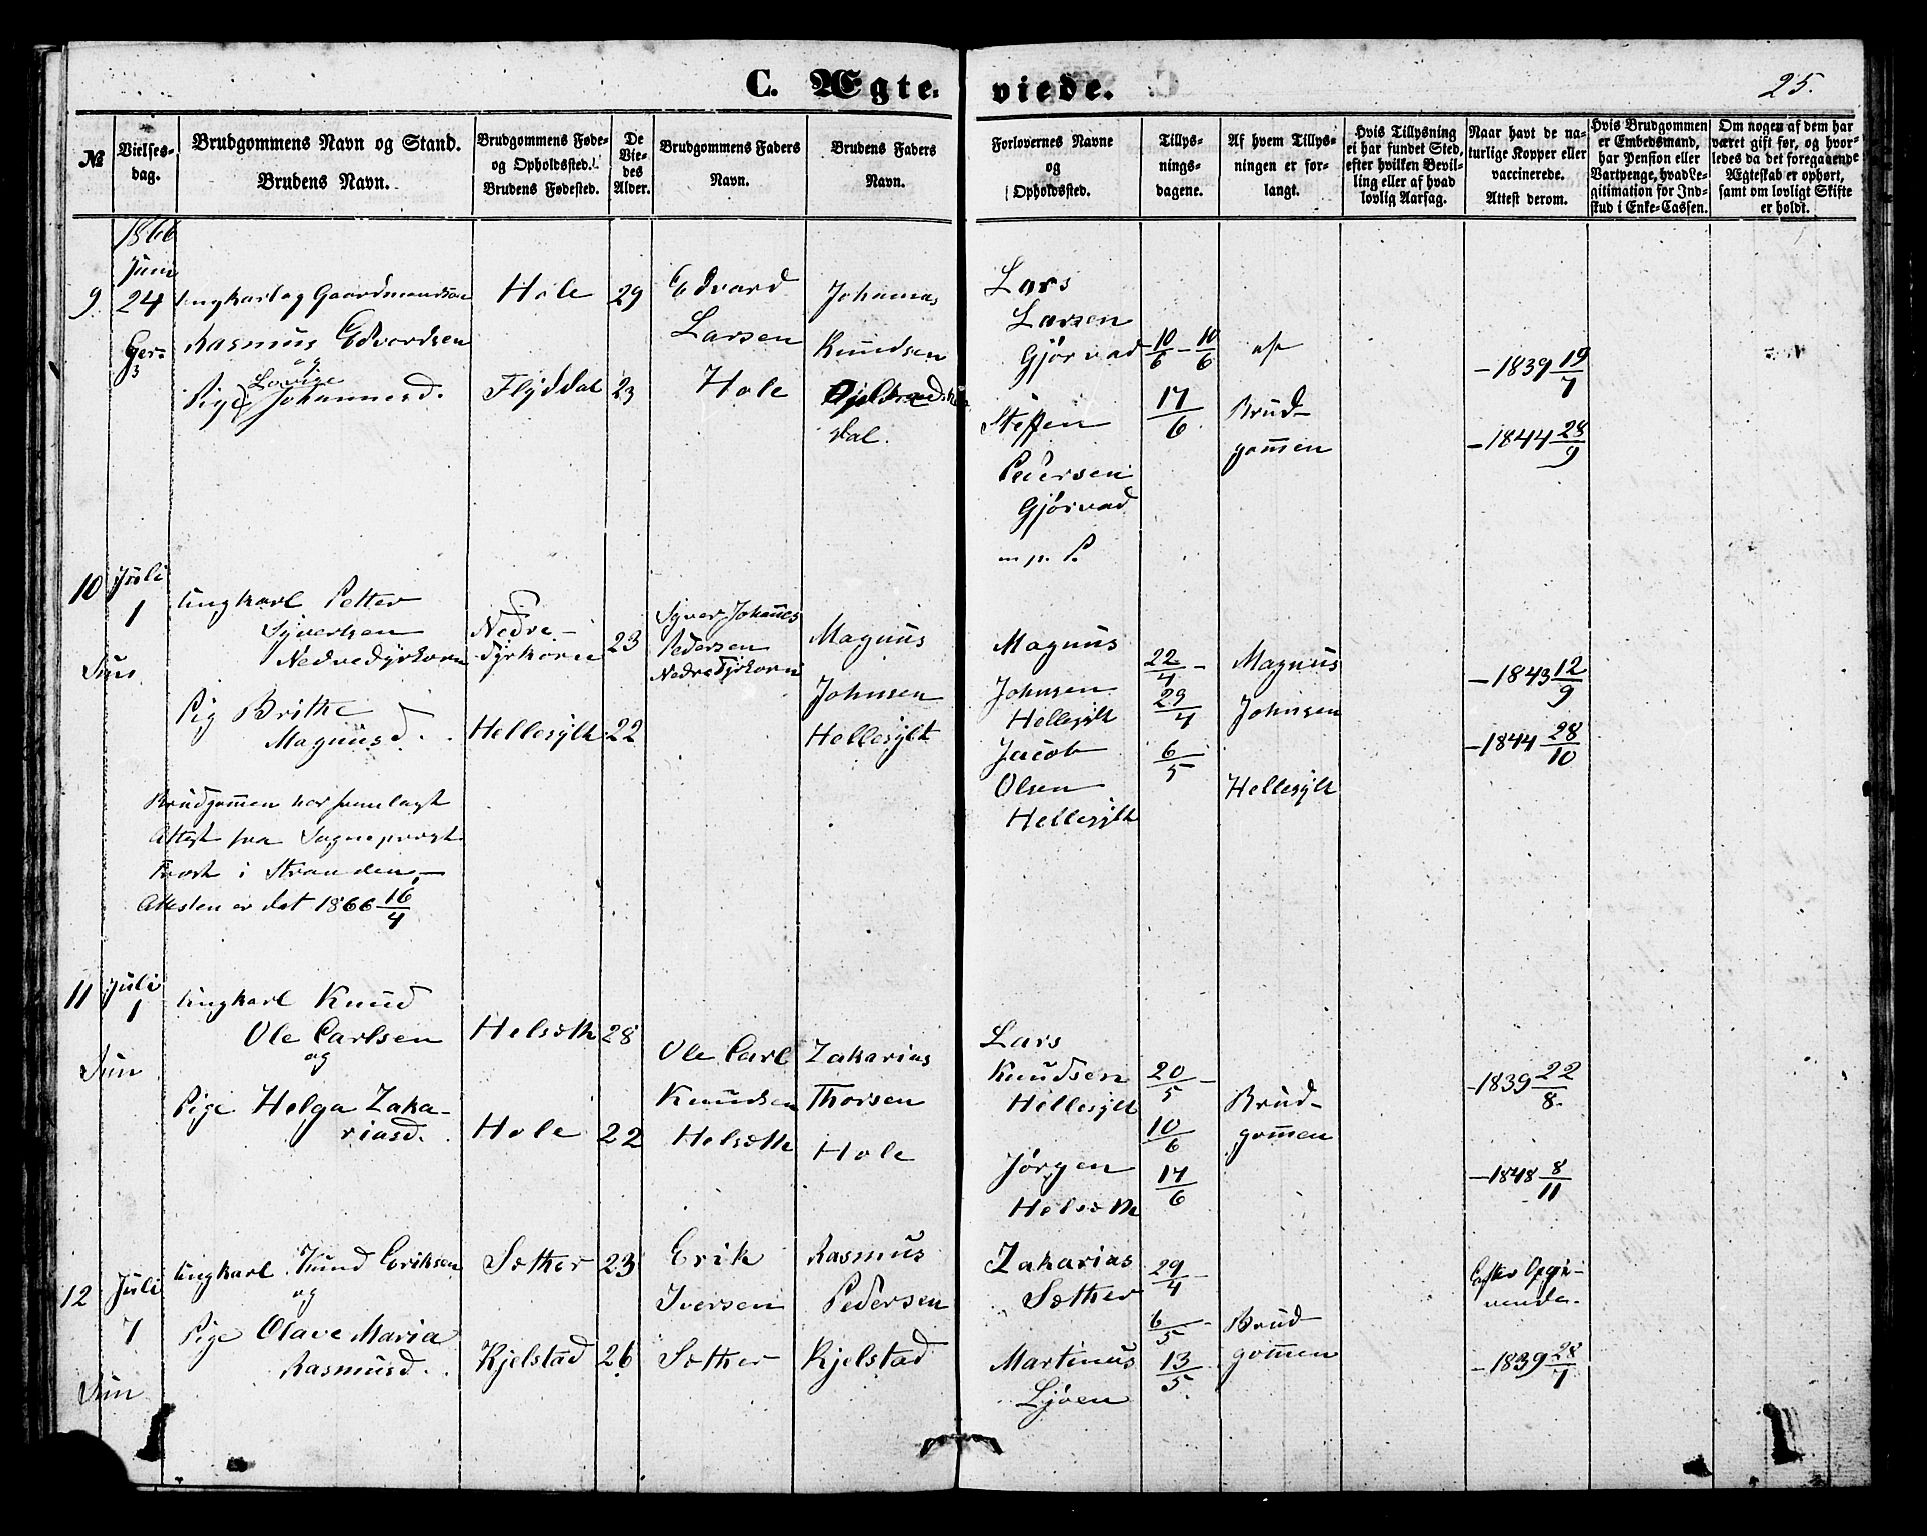 C. Ægte- viede.
25.
№
Vielses-
dag.
Brudgommens Navn og Stand.
Brudens Navn.
Brudgommens Føde-
og Opholdssted.
Brudens Fødested.
De
Vie-
des
Alder.
Brudgommens Faders
Navn.
Brudens Faders
Navn.
Forlovernes Navne
og
Opholdssted.
Tillys-
nings-
dagene.
Af hvem Tillys-
ningen er for-
langt.
Hvis Tillysning
ei har fundet Sted,
efter hvilken Bevil-
ling eller af hvad
lovlig Aarsag.
Naar havt de na-
turlige Kopper eller
vaccinerede.
Attest derom.
Hvis Brudgommen
er Embedsmand,
har Pension eller
Vartpenge, hvad Le-
gitimation for Ind-
skud i Enke-Cassen.
Om nogen af dem har
været gift før, og hvor-
ledes da det foregaaende
Ægteskab er ophørt,
samt om lovligt Skifte
er holdt.
1866
Juni
9
24
Ger.
Ungkarl og Gaardmandsøn
Rasmus Edvardsen
og
Pige Lovise
Johannesd.
Hole
Flyddal
29
23
Edvard
Larsen
Hole
Johannes
Knudsen
dal.
Lars
Larsen
Gjørvad
Steffen
Pedersen
Gjørvad
m. p. P.
10/6 - 10/6
17/6
Brud-
gommen
- 1839 19/7
- 1844 28/9
10
Juli
1
Sun
Ungkarl Petter
Syvertsen
Nedredyrkorn
Pig Brithe
Magnusd.
Nedre-
dyrkorn
Hellesylt
23
22
Syver Johannes
Pedersen
Nedredyrkorn
Magnus
Johnsen
Hellesylt
Magnus
Johnsen
Hellesylt
Jacob
Olsen
Hellesylt
22/4 -
29/4
6/5
Magnus
Johnsen
Hellesylt
- 1843 12/9
- 1844 28/10
Brudgommen har fremlagt
Attest fra Sogneprest
i Stranden,-
Attesten er dat 1866 16/4
11
Juli
1
Sun
Ungkarl Knud
Ole Carlsen
og
Pige Helga Zaka-
riasd.
Helsæth
Hole
28
22
Ole Carl
Knudsen
Helsæth
Zakarias
Thorsen
Hole
Lars
Knudsen
Hellesylt
Jørgen
Helsæth
20/5 -
10/6
17/6
Brud-
gommen
- 1839 22/8.
- 1848 8/11
12
Juli
7
Sun
Ungkarl Knud Eriksen
og
Pige Olave Maria
Rasmusd.
Sæther
Kjelstad
23
26
Erik
Iversen
Sæther
Rasmus
Pedersen
Kjelstad
Zakarias
Sæther
Martinus
Ljøen
29/4 -
6/5 -
13/5.
Brud
gommen
Efter Opgi-
vende.
- 1839 28/7